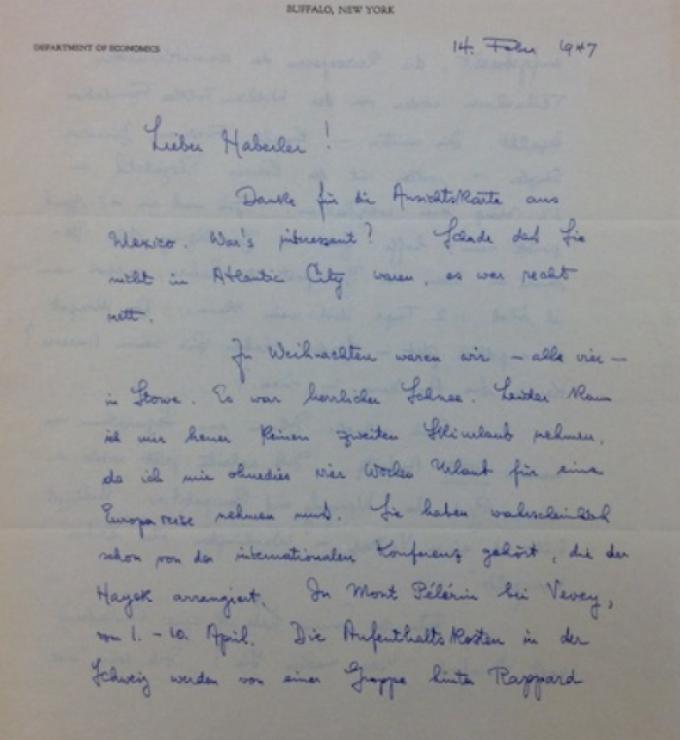 BUFFALO, NEW YORK
DEPARTMENT OF ECONOMICS
14. Feber 1947
Lieber Haberler!
Danke für die Ansichtskarte aus
Mexico. War's interessant? Schade daß Sie
nicht in Atlantic City waren, es war recht
nett.
Zu Weihnachten waren wir – alle vier –
in Stowe. Es war herrlicher Schnee. Leider kann
ich mir heuer keinen zweiten Skiurlaub nehmen,
da ich mir ohnedies vier Wochen Urlaub für eine
Europareise nehmen muß. Sie haben wahrscheinlich
schon von der internationalen Konferenz gehört, die der
Hayek arrangiert. In Mont Pélérin bei Vevey,
vom 1. – 10. April. Die Aufenthaltskosten in der
Schweiz werden von einer Gruppe hinter Rappard